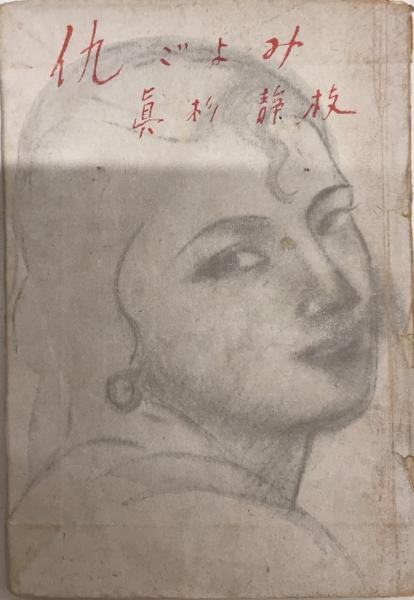 仇ごよみ
眞杉静枝